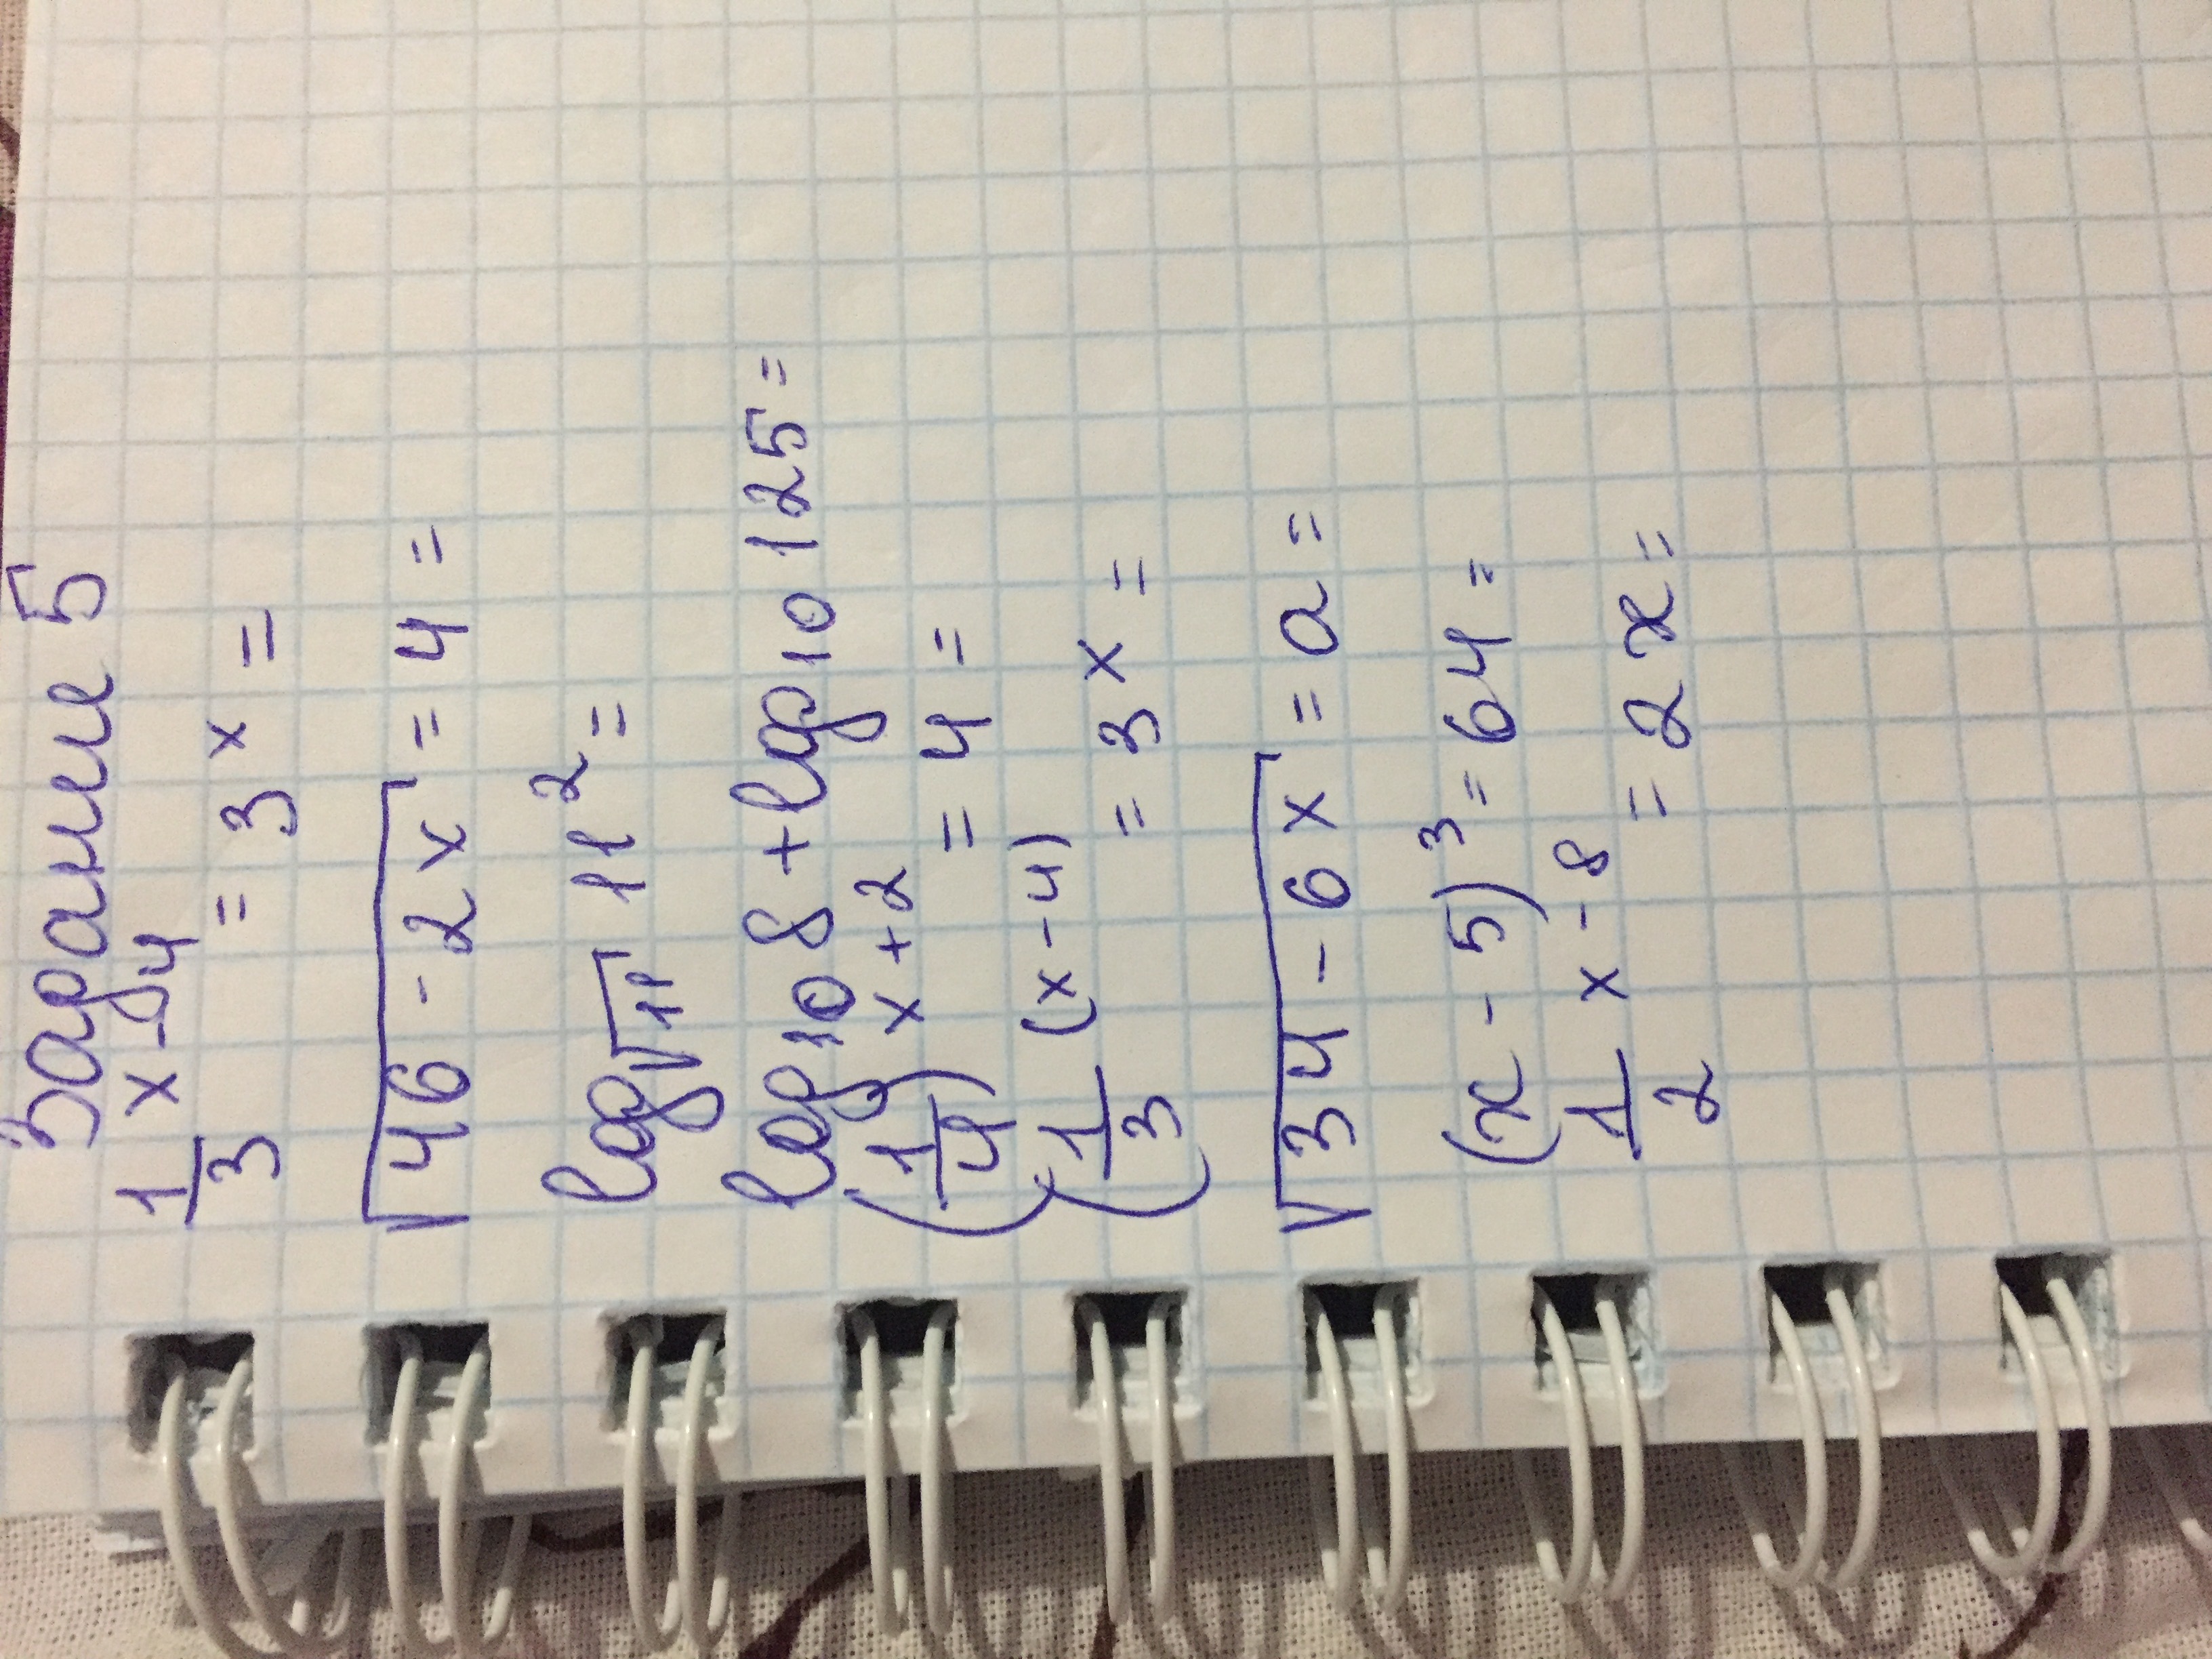 Задание 5
1/3 ˣ⁻⁴ = 3ˣ =
√46 - 2x = 4 =
log√11 11² =
log10 8 + log10 125 =
(1/4)ˣ⁺² = 4 =
(1/3 ⁽ˣ⁻⁴⁾ = 3ˣ =
√34 - 6x = a =
(x - 5)³ = 64 =
1/2 ˣ⁻⁸ = 2x =